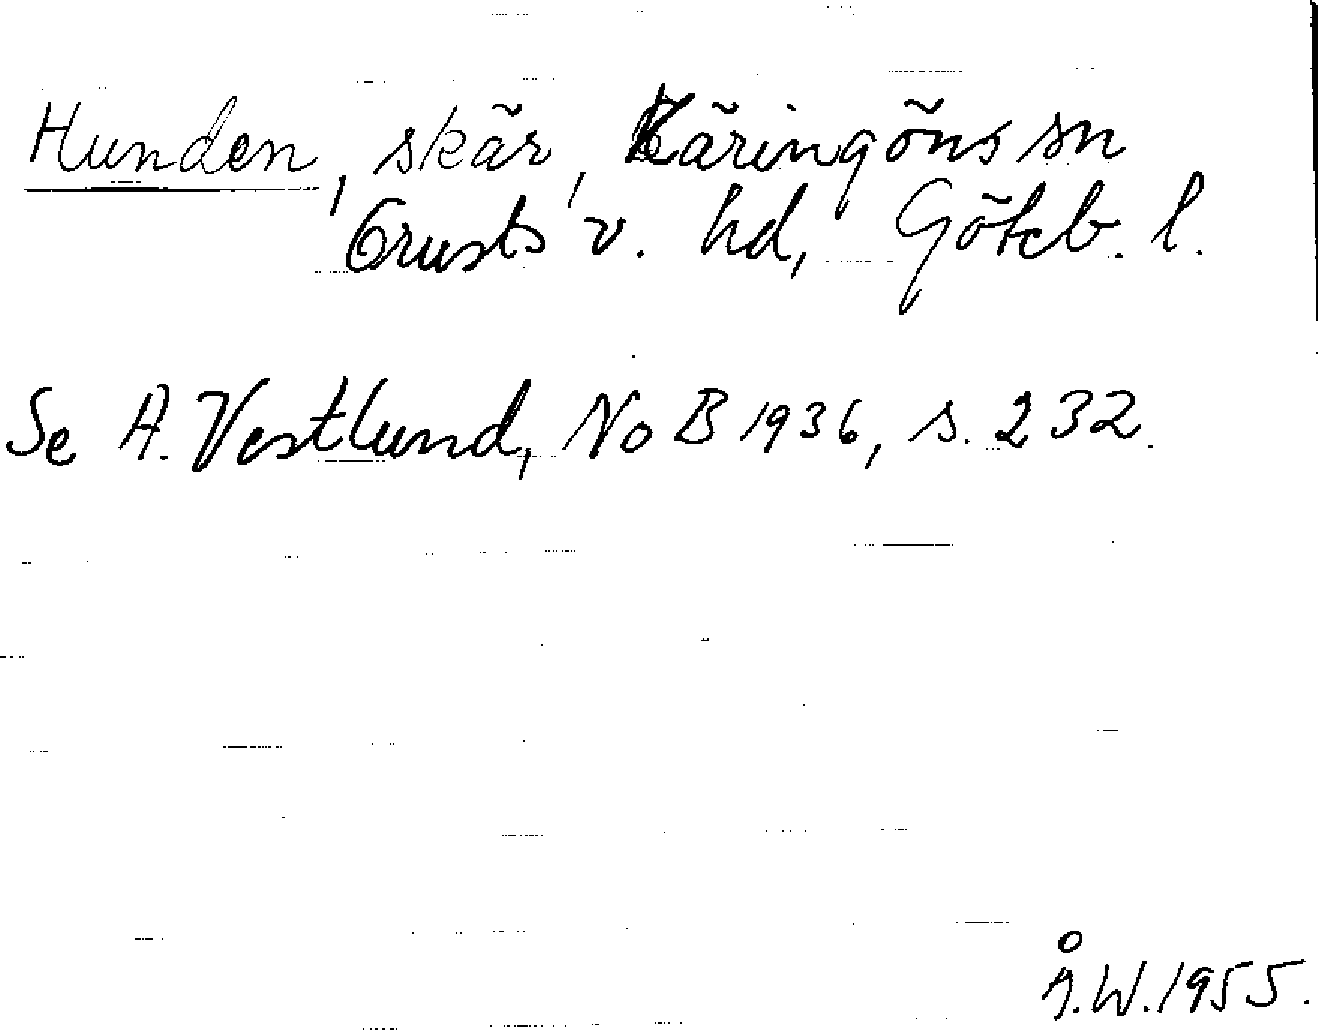 Hunden, skär, Käringöns sn
Orusts v. hd, Göteb. l.
Se A. Vestlund, NoB 1936, s. 232.
Å.W. 1955.